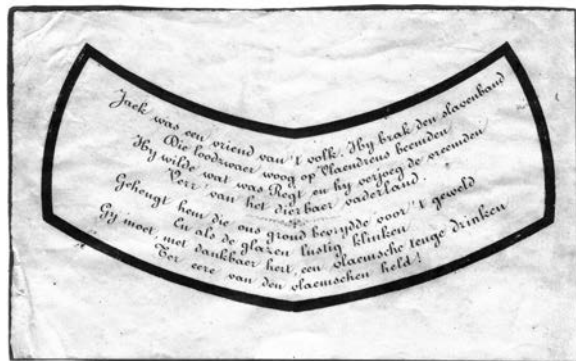 Jaek was een vriend van 't volk. Hy brak den slavenband
Die loodzwaer woog op Vlaendrens beemden
Hy wilde wat was Regt en hy verjoeg de vreemden
Verr' van het dierbaer vaderland.
Geheugt hem die ons grond bevrydde voor 't geweld
En als de glazen lustig klinken
Gy moet, met dankbaer hert, een vlaemsche teuge drinken
Ter eere van den vlaemschen held!